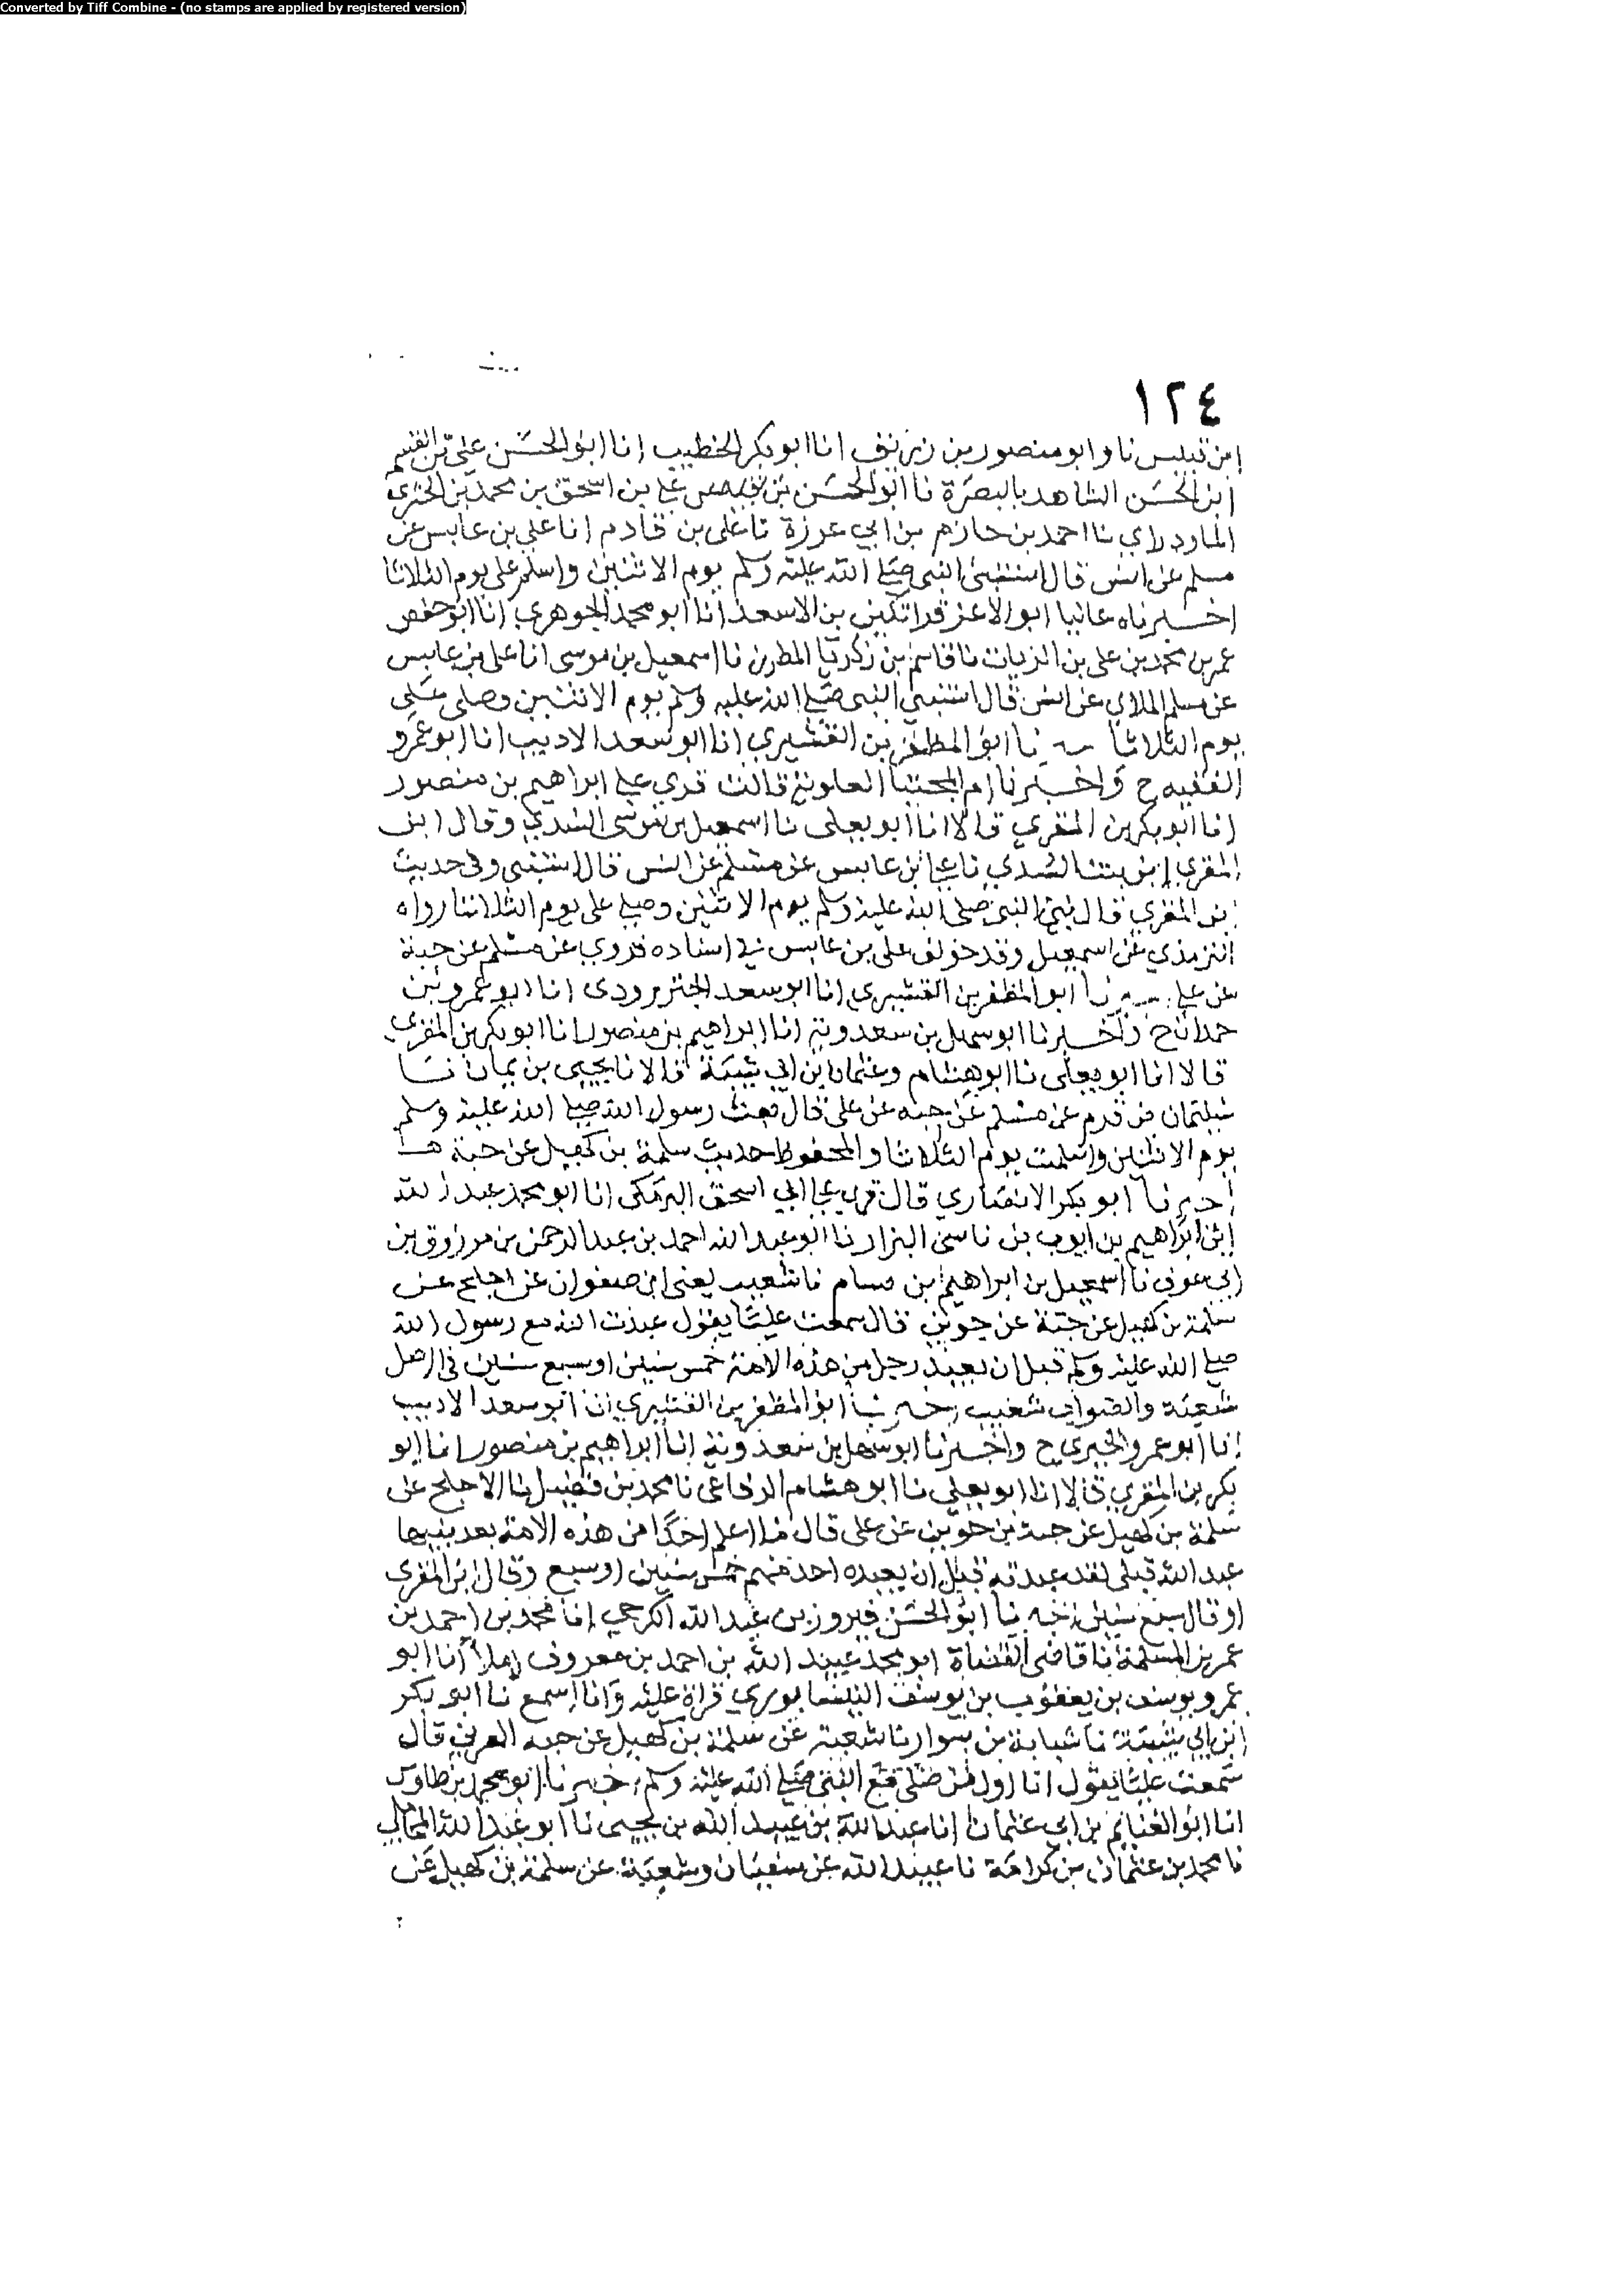 Converted by Tiff Combine - (no stamps are applied by registered version)
١٢٤
ابن قبيس نا وابو منصور بن زريق انا ابو بكر الخطيب انا ابو الحسن علي بن القسم
ابن الحسن الشاهد بالبصرة نا ابو الحسن علي بن اسحق بن محمد بن البختري
المادراي نا احمد بن حازم بن ابي غرزة نا علي بن قادم انا علي بن عابس عن
مسلم عن انس قال استنبئ النبي صلى الله عليه وسلم يوم الاثنين واسلم علي يوم الثلاثا
اخبرناه عاليا ابو الاعز قراتكين بن الاسعد انا ابو محمد الجوهري انا ابو حفص
عمر بن محمد بن علي بن الزيات نا قاسم بن زكريا المطرز نا اسمعيل بن موسى انا علي بن عابس
عن مسلم الملاي عن انس قال استنبئ النبي صلى الله عليه وسلم يوم الاثنين وصلى علي
يوم الثلاثا نا ابو المظفر بن القشيري انا ابو سعد الاديب انا ابو عمرو
الفقيه ح واخبرتنا ام المجتبا العلوية قالت قري على ابراهيم بن منصور
انا ابو بكر بن المقري قالا انا ابو يعلى نا اسمعيل بن موسى السدي وقال ابن
المقري ابن بنت السدي نا علي بن عابس عن مسلم عن انس قال استنبئ وفي حديث
بن المقري قال نبئ النبي صلى الله عليه وسلم يوم الاثنين وصلى علي يوم الثلاثا رواه
الترمذي عن اسمعيل وقد خولف علي بن عابس في اسناده فروي عن مسلم عن حبة
عن علي نا ابو المظفر بن القشيري انا ابو سعد الجنزرودي انا ابو عمرو بن
حمدان ح واخبرنا ابو سهل بن سعدوية انا ابراهيم بن منصور انا ابو بكر بن المقري
قالا انا ابو يعلى نا ابو هشام وعثمان بن ابي شيبة قالا نا يحيى بن يمان نا
سليمان بن قرم عن مسلم عن حبه عن علي قال بعث رسول الله صلى الله عليه وسلم
يوم الاثنين واسلمت يوم الثلاثا والمحفوظ حديث سلمة بن كهيل عن حبة
اخبرنا ابو بكر الانصاري قال قري على ابي اسحق البرمكي انا ابو محمد عبد الله
ابن ابراهيم بن ايوب بن ماسي البزار نا ابو عبد الله احمد بن عبد الرحمن بن مرزوق بن
ابي عوف نا اسمعيل بن ابراهيم بن بسام نا شعيب يعني ابن صفوان عن اجلح عن
سلمة بن كهيل عن حبة عن جوين قال سمعت عليا يقول عبدت الله مع رسول الله
صلى الله عليه وسلم قبل ان يعبده رجل من هذه الامة خمس سنين او سبع سنين في الاصل
شعبة والصواب شعيب اخبرنا ابو المظفر بن القشيري انا ابو سعد الاديب
انا ابو عمرو الحيري ح واخبرنا ابو سهل بن سعدوية انا ابراهيم بن منصور انا ابو
بكر بن المقري قالا انا ابو يعلى نا ابو هشام الرفاعي نا محمد بن فضيل نا الاجلح عن
سلمة بن كهيل عن حبة بن جوين عن علي قال ما اعلم احدا من هذه الامة بعد نبيها
عبد الله قبلي لقد عبدته قبل ان يعبده احد منهم خمس سنين او سبع وقال ابن المقري
او قال سبع سنين اخبرنا ابو الحسن فيروز بن عبد الله الكرجي انا محمد بن احمد بن
عمر بن المسلمة نا قاضي القضاة ابو محمد عبيد الله بن احمد بن معروف املا انا ابو
عمرو يوسف بن يعقوب بن يوسف النيسابوري قراة عليه وانا اسمع نا ابو بكر
ابن ابي شيبة نا شبابة بن سوار نا شعبة عن سلمة بن كهيل عن حبه العرني قال
سمعت عليا يقول انا اول من صلى مع النبي صلى الله عليه وسلم اخبرنا ابو محمد بن طاوس
انا ابو الغنايم بن ابي عثمان انا عبد الله بن عبيد الله بن يحيى نا ابو عبد الله المحاملي
نا محمد بن عثمان بن كرامة نا عبيد الله عن سفيان وشعبة عن سلمة بن كهيل عن